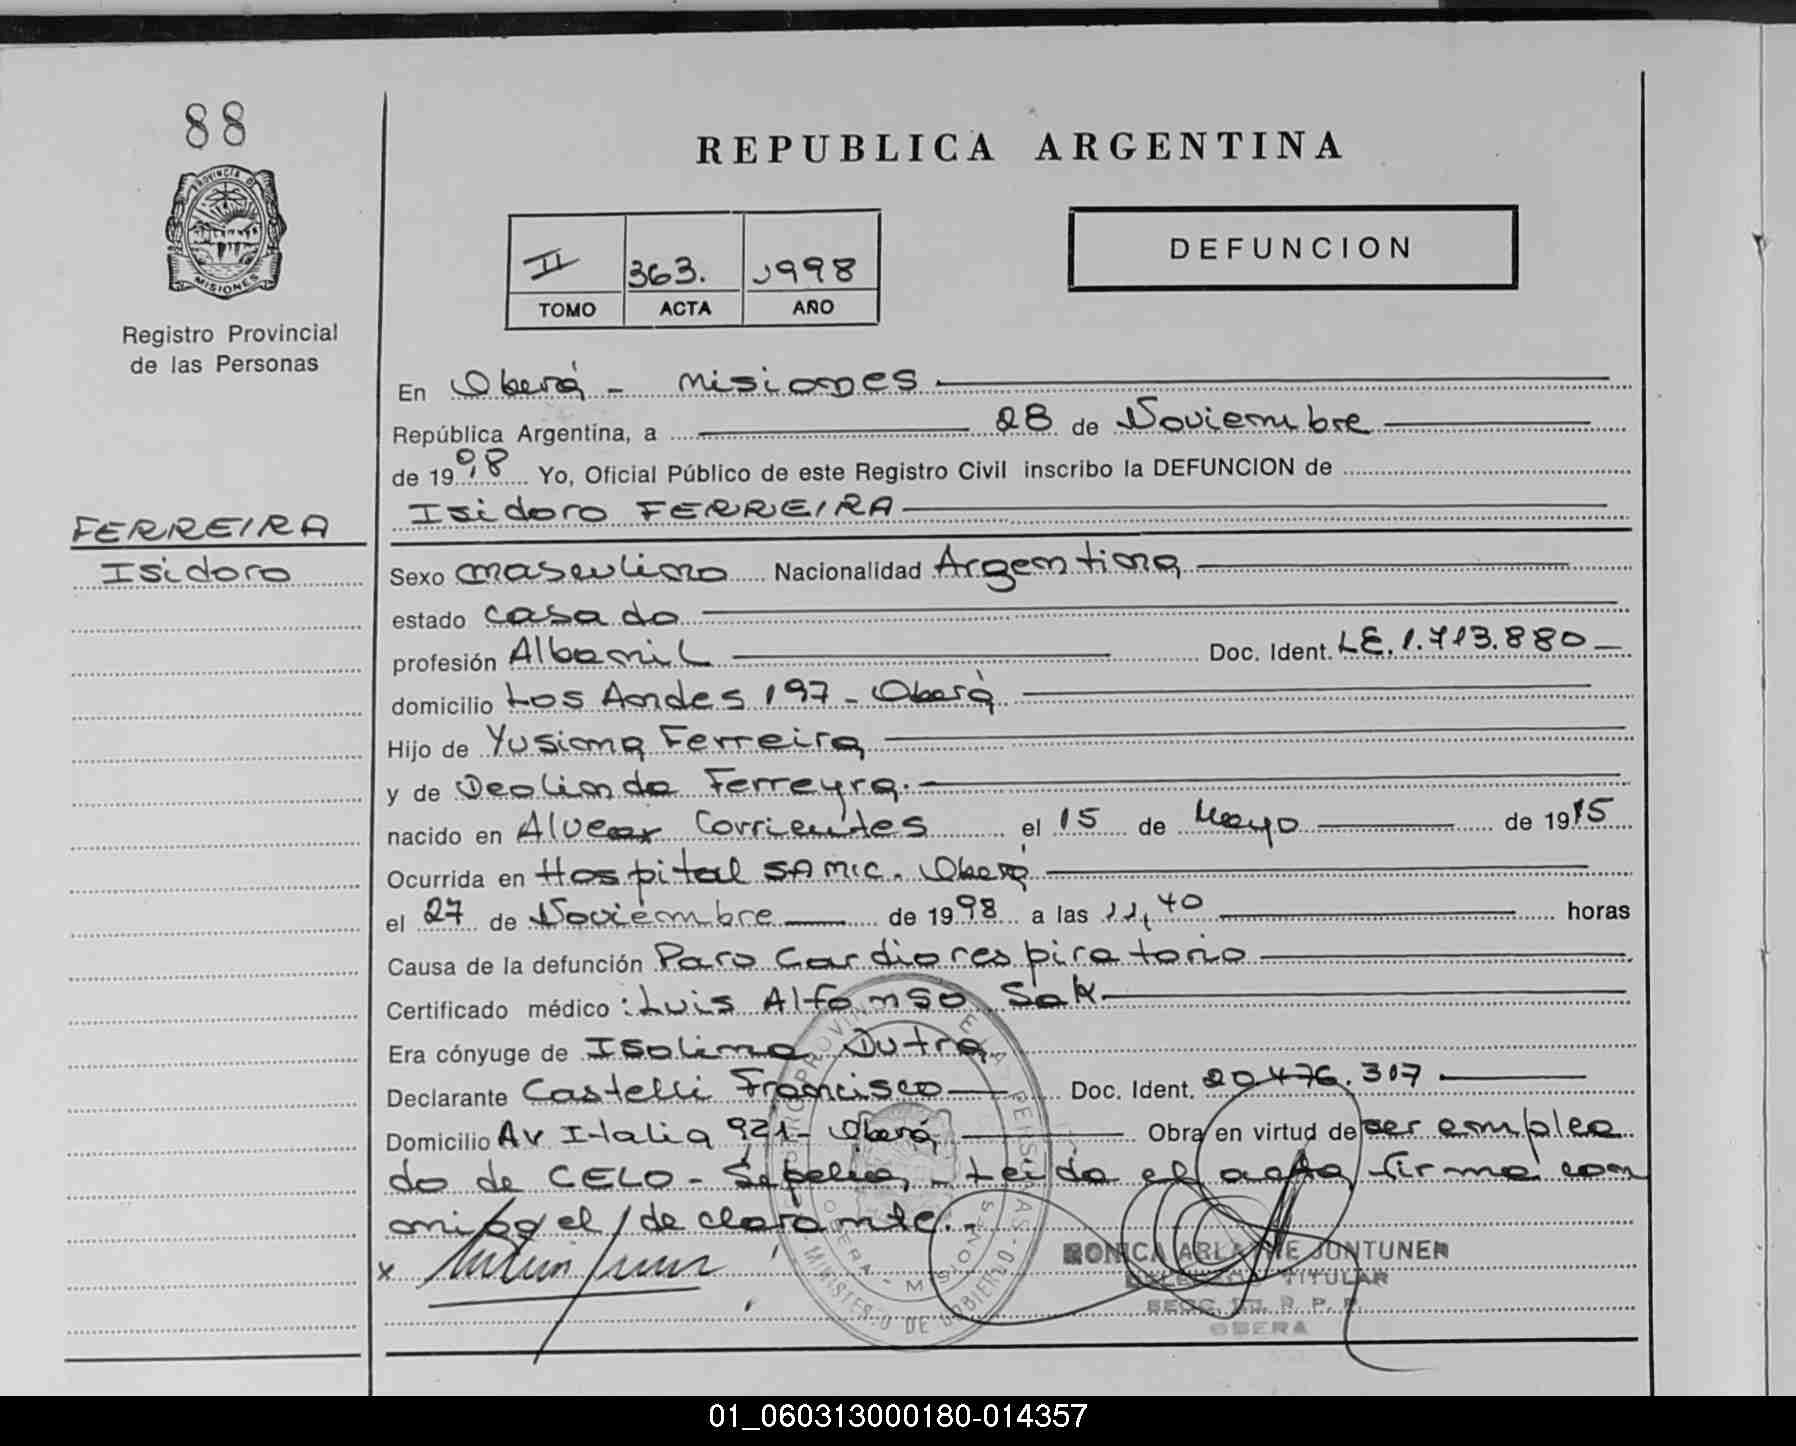 88
PROVINCIA DE
MISIONES
Registro Provincial
de las Personas
REPUBLICA ARGENTINA
II 363. 1998
TOMO ACTA AÑO
DEFUNCION
En Oberá - Misiones
República Argentina, a 28 de Noviembre
de 1998 Yo, Oficial Público de este Registro Civil inscribo la DEFUNCION de
Isidoro FERREIRA
FERREIRA
Isidoro
Sexo masculino Nacionalidad Argentina
estado casado
profesión Albanil Doc. Ident. LE.1.713.880
domicilio Los Andes 197 - Oberá
Hijo de Yusiana Ferreira
y de Deolinda Ferreyra.
nacido en Alvear Corrientes el 15 de Mayo de 1915
Ocurrida en Hospital SAMIC. Oberá
el 27 de Noviembre de 1998 a las 11,40 horas
Causa de la defunción Paro Cardiorespiratorio
Certificado médico: Luis Alfonso Sak
Era cónyuge de Isolina Dutra
Declarante Castelli Francisco Doc. Ident. 20.476.317
Domicilio Av Italia 921 - Oberá Obra en virtud de ser emplea
do de CELO - Sepelio, - Leida el acta firma con
migo el declarante.-
x
ARLA NE JUNTUNEN
TITULAR
R. P. P.
OBERA
MINISTERIO DE GOBIERNO
OBERA - MISIONES
01_060313000180-014357